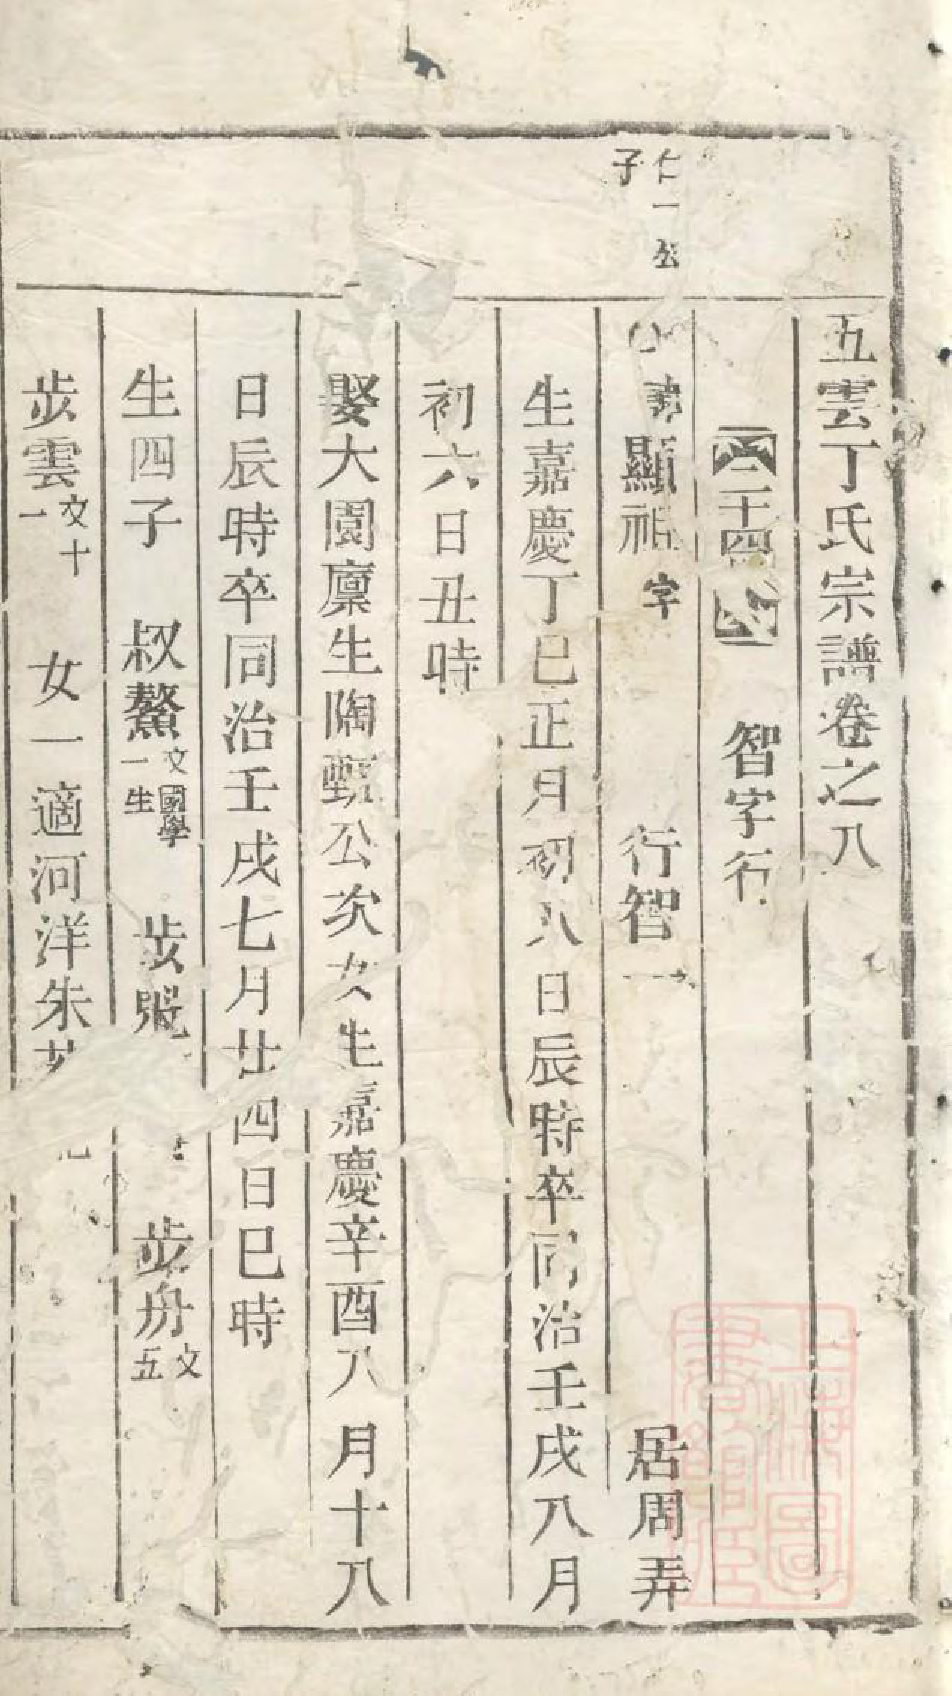 五雲丁氏宗譜卷之八
二十四 智字行
仁一公子
諱顯祖字 行智一 居周弄
生嘉慶丁巳正月初八日辰特卒同治壬戌八月
初六日丑時
娶大園廩生陶甄公次女生嘉慶辛酉八月十八
日辰時卒同治壬戌七月廿四日巳時
生四子 叔鰲文一國學生 步 步舟文五
步雲文十一 女一適河洋朱
上海圖書館藏